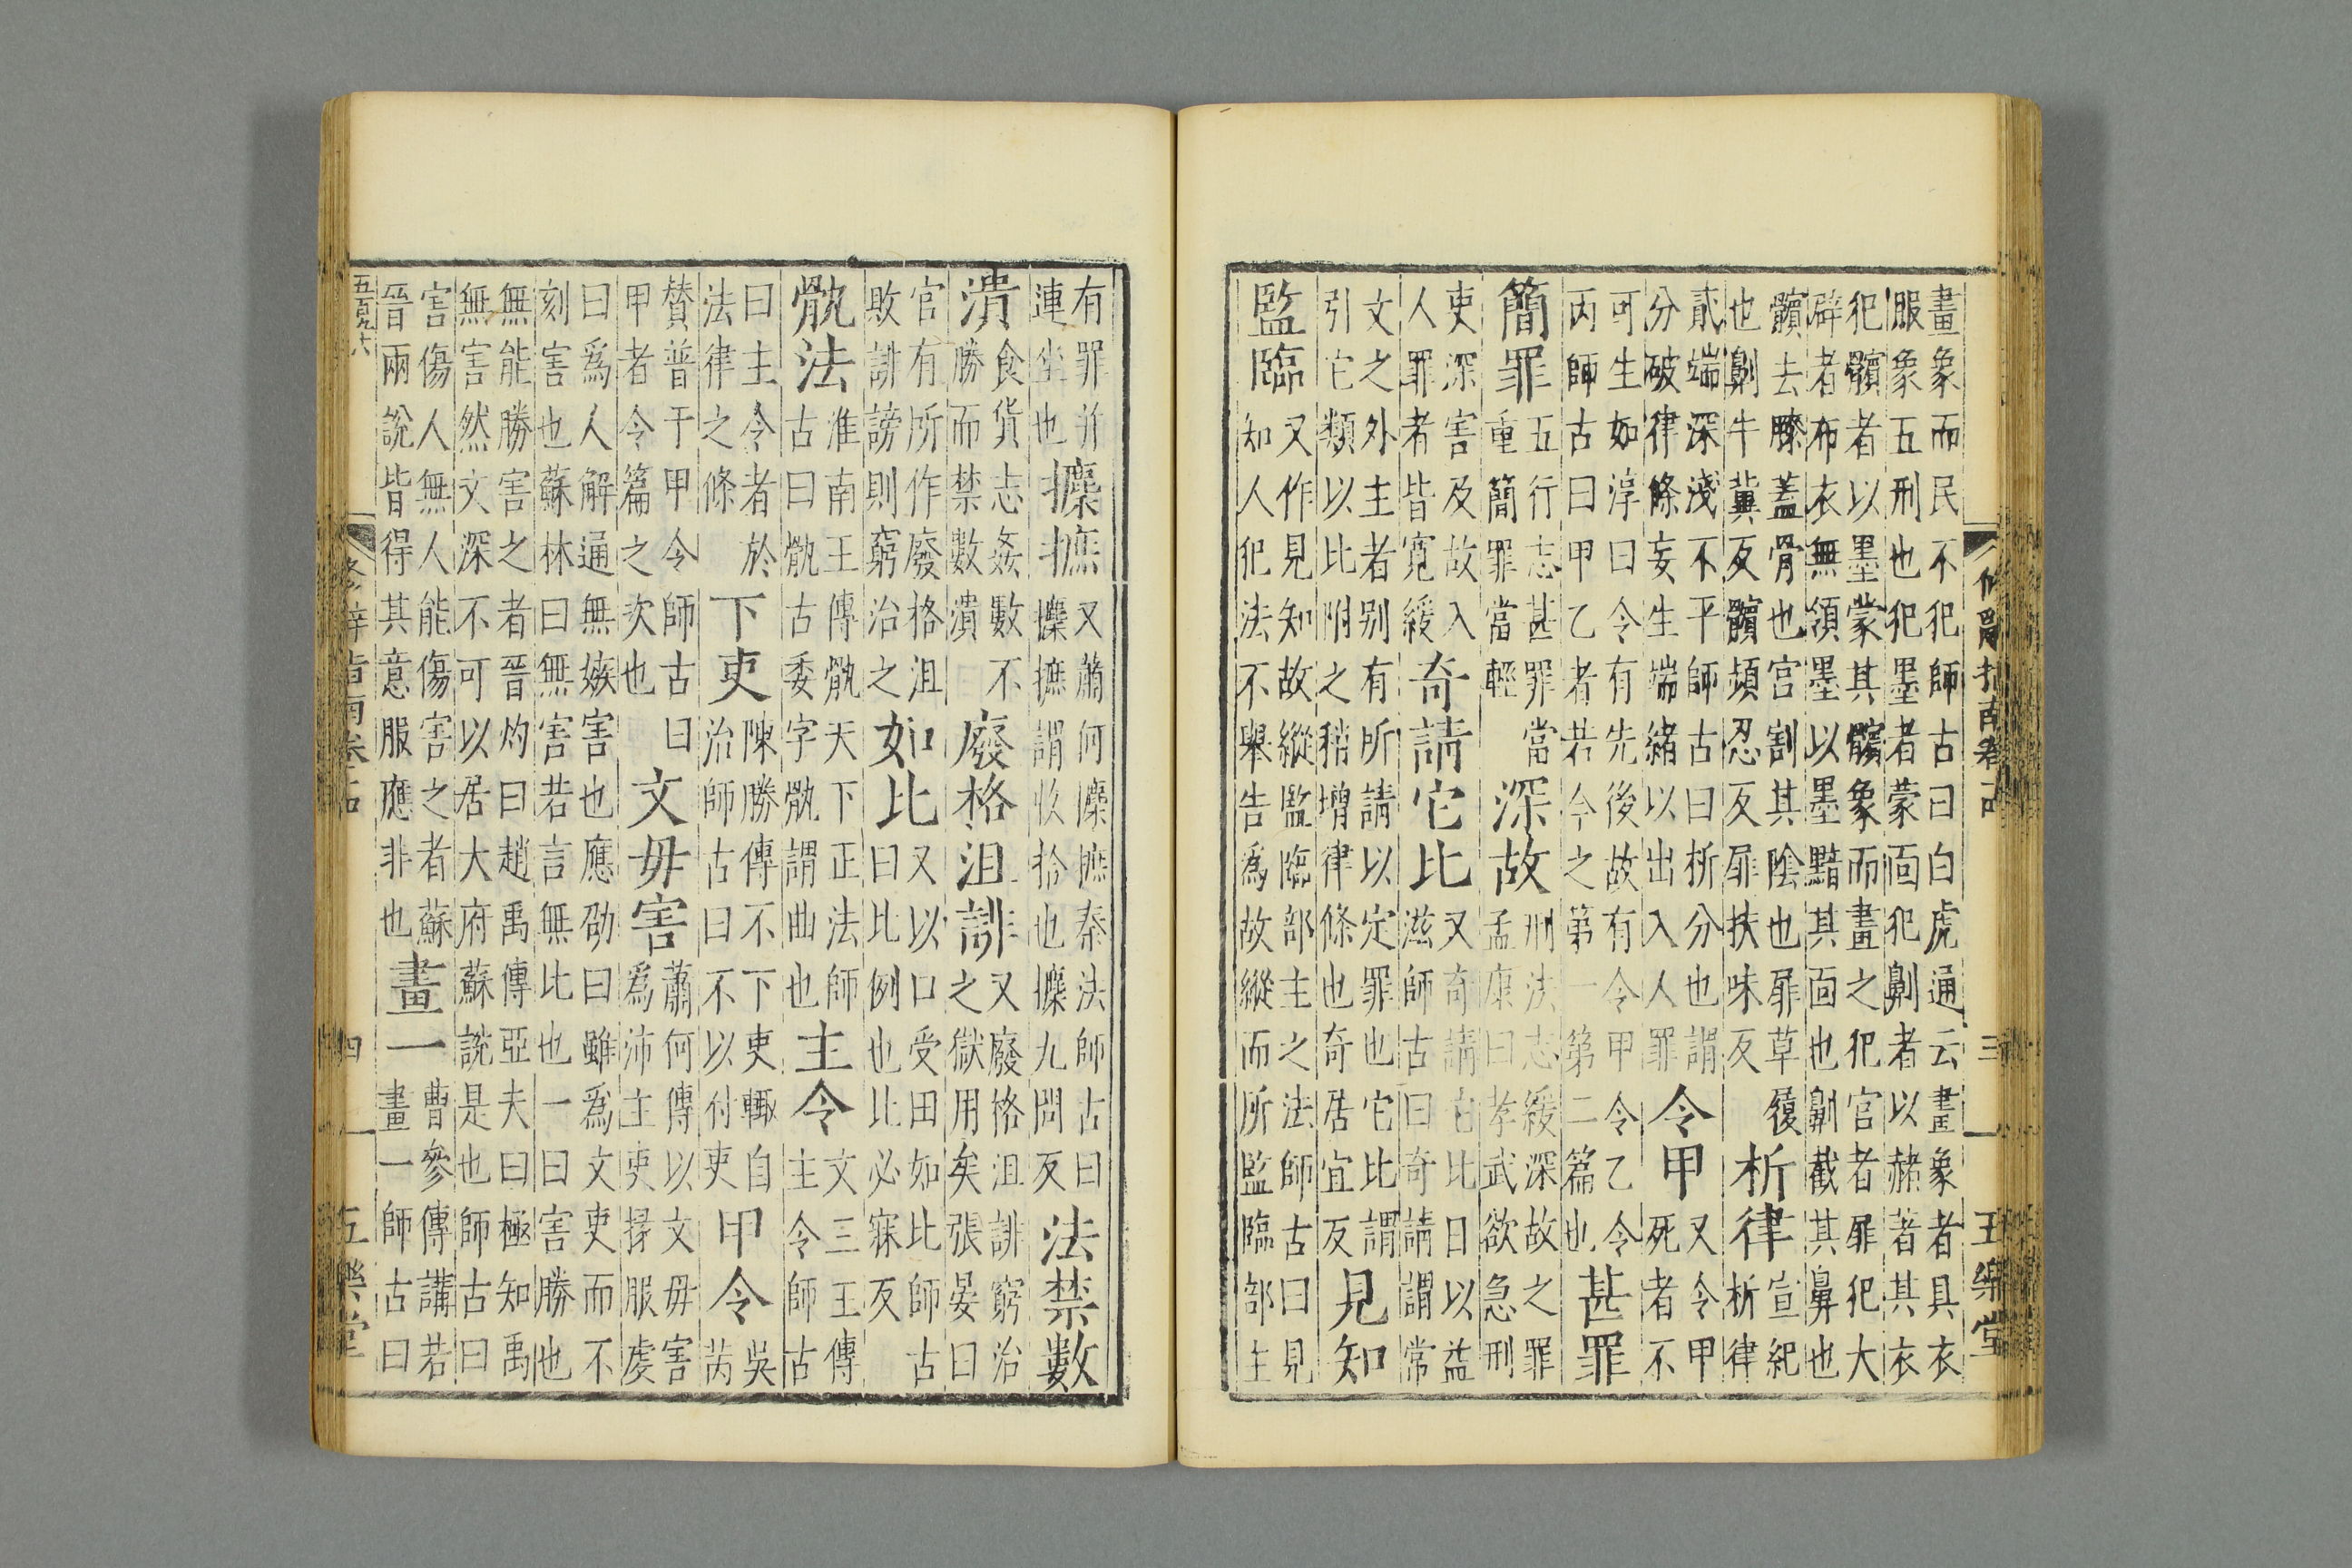 修辭指南卷十四 三 五樂堂
畫象而民不犯師古曰白虎通云畫象者其衣
服象五刑也犯墨者蒙面犯劓者以赭著其衣
犯髕者以墨蒙其髕象而畫之犯宮者屝犯大
辟者布衣無領墨以墨黥其面也劓截其鼻也
髕去膝蓋骨也宮割其陰也屝草履
也劓牛冀反髕頻忍反屝扶味反
析律
宣紀
析律
貳端深淺不平師古曰析分也謂
分破律條妄生端緒以出入人罪
令甲
又令甲
死者不
可生如淳曰令有先後故有令甲令乙令
丙師古曰甲乙者若今之第一第二篇也
甚罪
簡罪
五行志甚罪當
重簡罪當輕
深故
刑法志緩深故之罪
孟康曰孝武欲急刑
吏深害及故入
人罪者皆寬緩
奇請它比
又奇請它比日以益
滋師古曰奇請謂常
文之外主者别有所請以定罪也它比謂
引它類以比附之稍增律條也奇居宜反
見知
監臨
又作見知故縱監臨部主之法師古曰見
知人犯法不舉告為故縱而所監臨部主
有罪并
連坐也
攈摭
又蕭何攈摭秦法師古曰
攈摭謂收拾也攈九問反
法禁數
潰
食貨志姦數不
勝而禁數潰
廢格沮誹
又廢格沮誹窮治
之獄用矣張晏曰
官有所作廢格沮
敗誹謗則窮治之
如比
又以口受田如比師古
曰比比例也比必寐反
骫法
淮南王傳骫天下正法師
古曰骫古委字骫謂曲也
主令
文三王傳
主令師古
曰主令者於
法律之條
下吏
陳勝傳不下吏輒自
治師古曰不以付吏
甲令
吳
芮
贊普于甲令師古曰
甲者令篇之次也
文毋害
蕭何傳以文毋害
爲沛主吏掾服虔
曰爲人解通無嫉害也應劭曰雖爲文吏而不
刻害也蘇林曰無害若言無比也一曰害勝也
無能勝害之者晉灼曰趙禹傳亞夫曰極知禹
無害然文深不可以居大府蘇說是也師古曰
害傷人無人能傷害之者蘇
晉兩說皆得其意服應非也
畫一
曹參傳講若
畫一師古曰
修辭指南卷十四 四 五樂堂